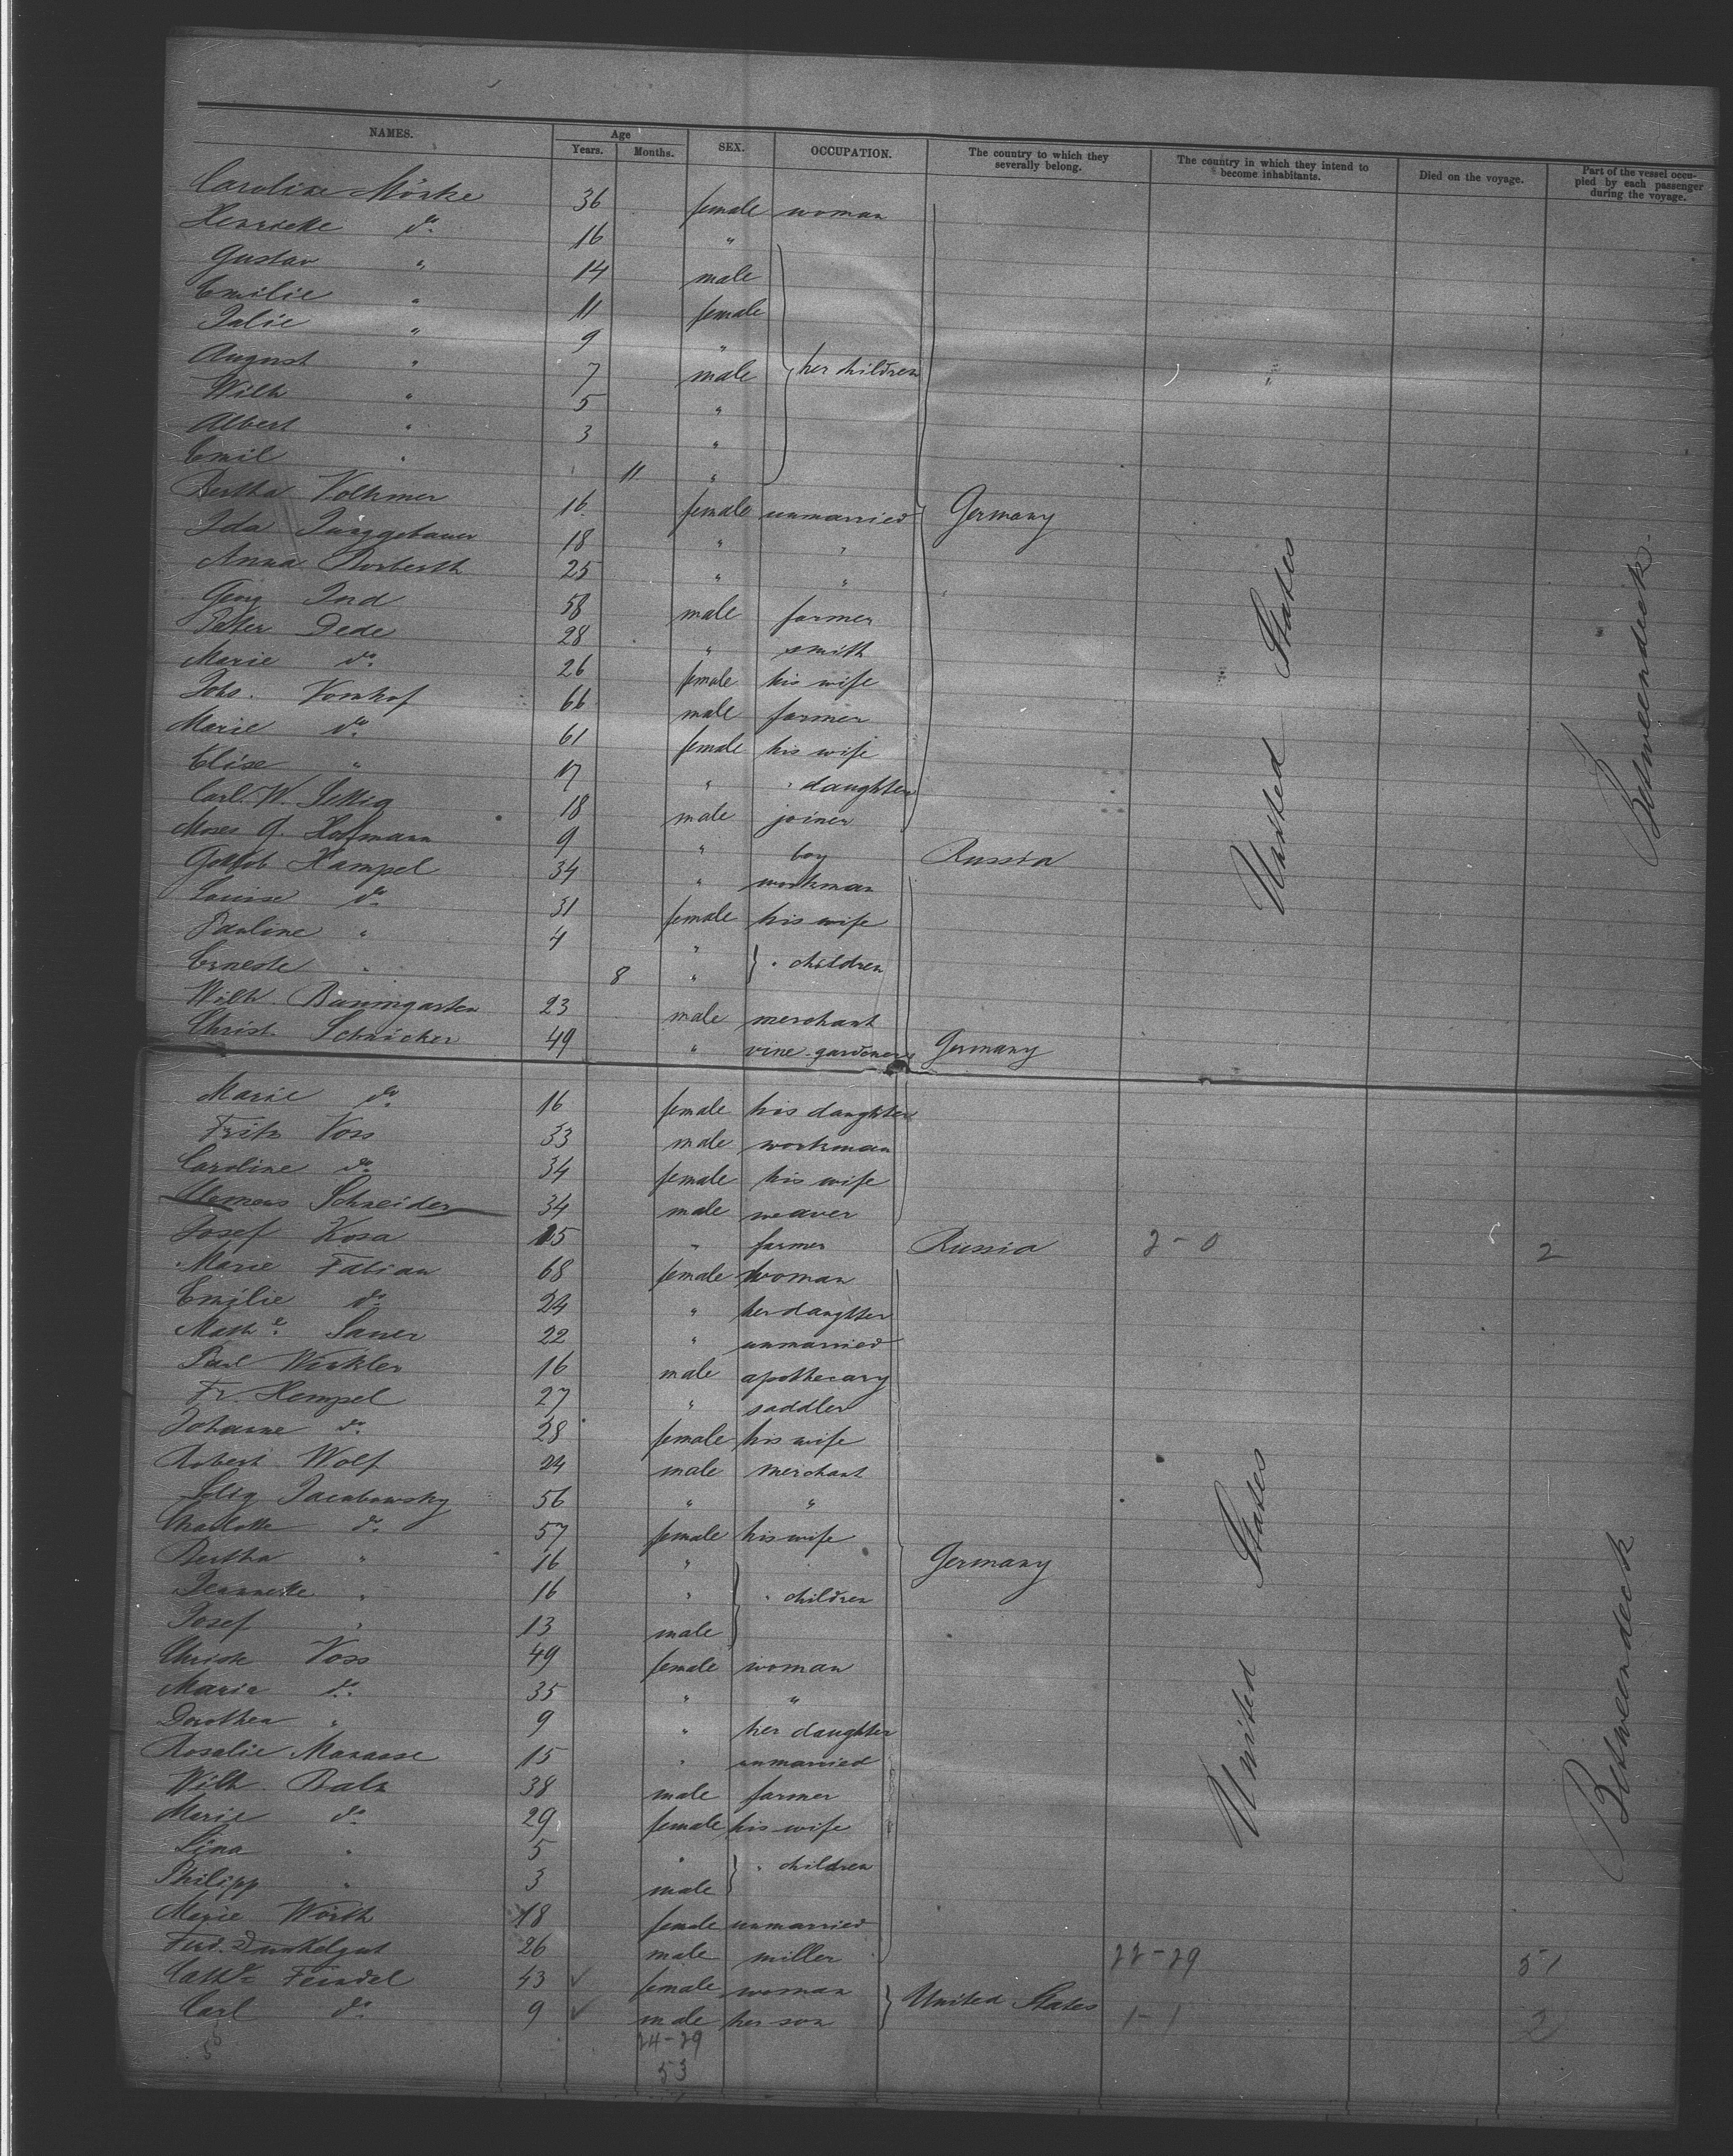 NAMES. Age SEX. OCCUPATION. The country to which they severally belong. The country in which they intend to become inhabitants. Died on the voyage. Part of the vessel occupied by each passenger during the voyage.
Years. Months.
Caroline Mörke 36 female woman
Henriette do 16 "
Gustav " 14 male
Emilie " 11 female
Julie " 9 "
August " 7 male her children
Wilh " 5 "
Albert " 3 "
Emil " 11 "
Bertha Volkmer 16 female unmarried Germany
Ida Junggebauer 18 " "
Anna 25 " "
Georg 58 male farmer
Peter Dede 28 " smith
Marie do 26 female his wife
Johs. Vornhof 66 male farmer
Marie do 61 female his wife
Elise " 17 " " daughter
Carl W. 18 male joiner
Moses G. Hoffmann 9 " boy Russia
Gottlob Hampel 34 " workman
Louise do 31 female his wife
Pauline " 4 "
Erneste " 8 " " children
Wilh. Baumgarten 23 male merchant
Christ. Schnicker 49 " vine-gardener Germany
United States
Betweendeck
Marie do 16 female his daughter
Fritz Voss 33 male workman
Caroline do 34 female his wife
Clemens Schneider 34 male weaver
Josef Kosa 15 " farmer Russia 2-0 2
Marie Fabian 68 female woman
Emilie do 24 " her daughter
Mathe Sauer 22 " unmarried
Paul Winkler 16 male apothecary
Fr. Hempel 27 " saddler
Johanne do 28 female his wife
Robert Wolf 24 male merchant
Selig Jacubowsky 56 " "
Charlotte do 57 female his wife
Bertha " 16 " Germany
Jeannette " 16 " " children
Josef " 13 male
Christ. Voss 49 female woman
Maria do 35 " "
Dorothea " 9 " her daughter
Rosalie Manasse 15 " unmarried
Wilh. Balz 38 male farmer
Marie do 29 female his wife
Lina " 5 " " children
Philipp " 3 male
Marie Wörth 18 female unmarried
Ferd. Dunkelgut 26 male miller 22-29 51
Cathe Feindel 43 female woman United States
Carl do 9 male her son 1-1 2
24-29
53
United States
Betweendeck